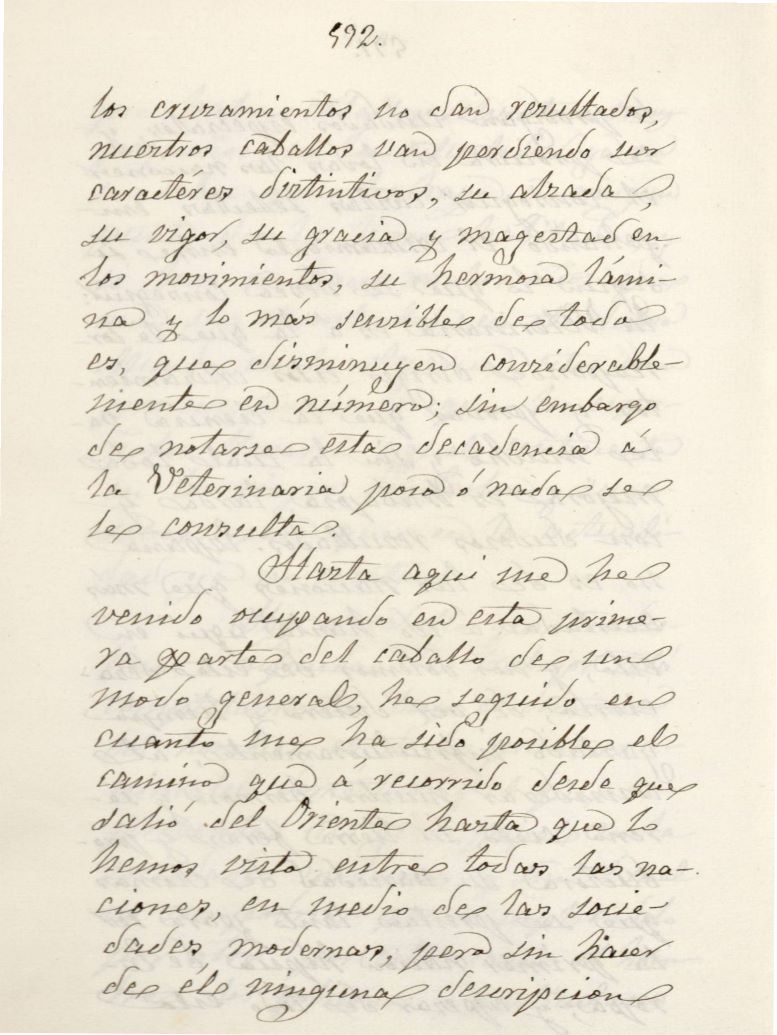 592.
los cruzamientos no dan rezultados,
nuestros caballos van perdiendo sus
caractéres distintivos, su alzada,
su vigor, su gracia y magestad en
los movimientos, su hermosa lámi-
na y lo más sensible de todo
es, que disminuyen considerable-
mente en número; sin embargo
de notarse esta decadencia á
la Veterinaria poco ó nada se
le consulta.
Hasta aqui me he
venido ocupando en esta prime-
ra parte del caballo de un
modo general, he seguido en
cuanto me ha sido posible el
camino que á recorrido desde que
salió del Oriente hasta que lo
hemos visto entre todas las na-
ciones, en medio de las socie-
dades modernas, pero sin hacer
de él ninguna descripcion